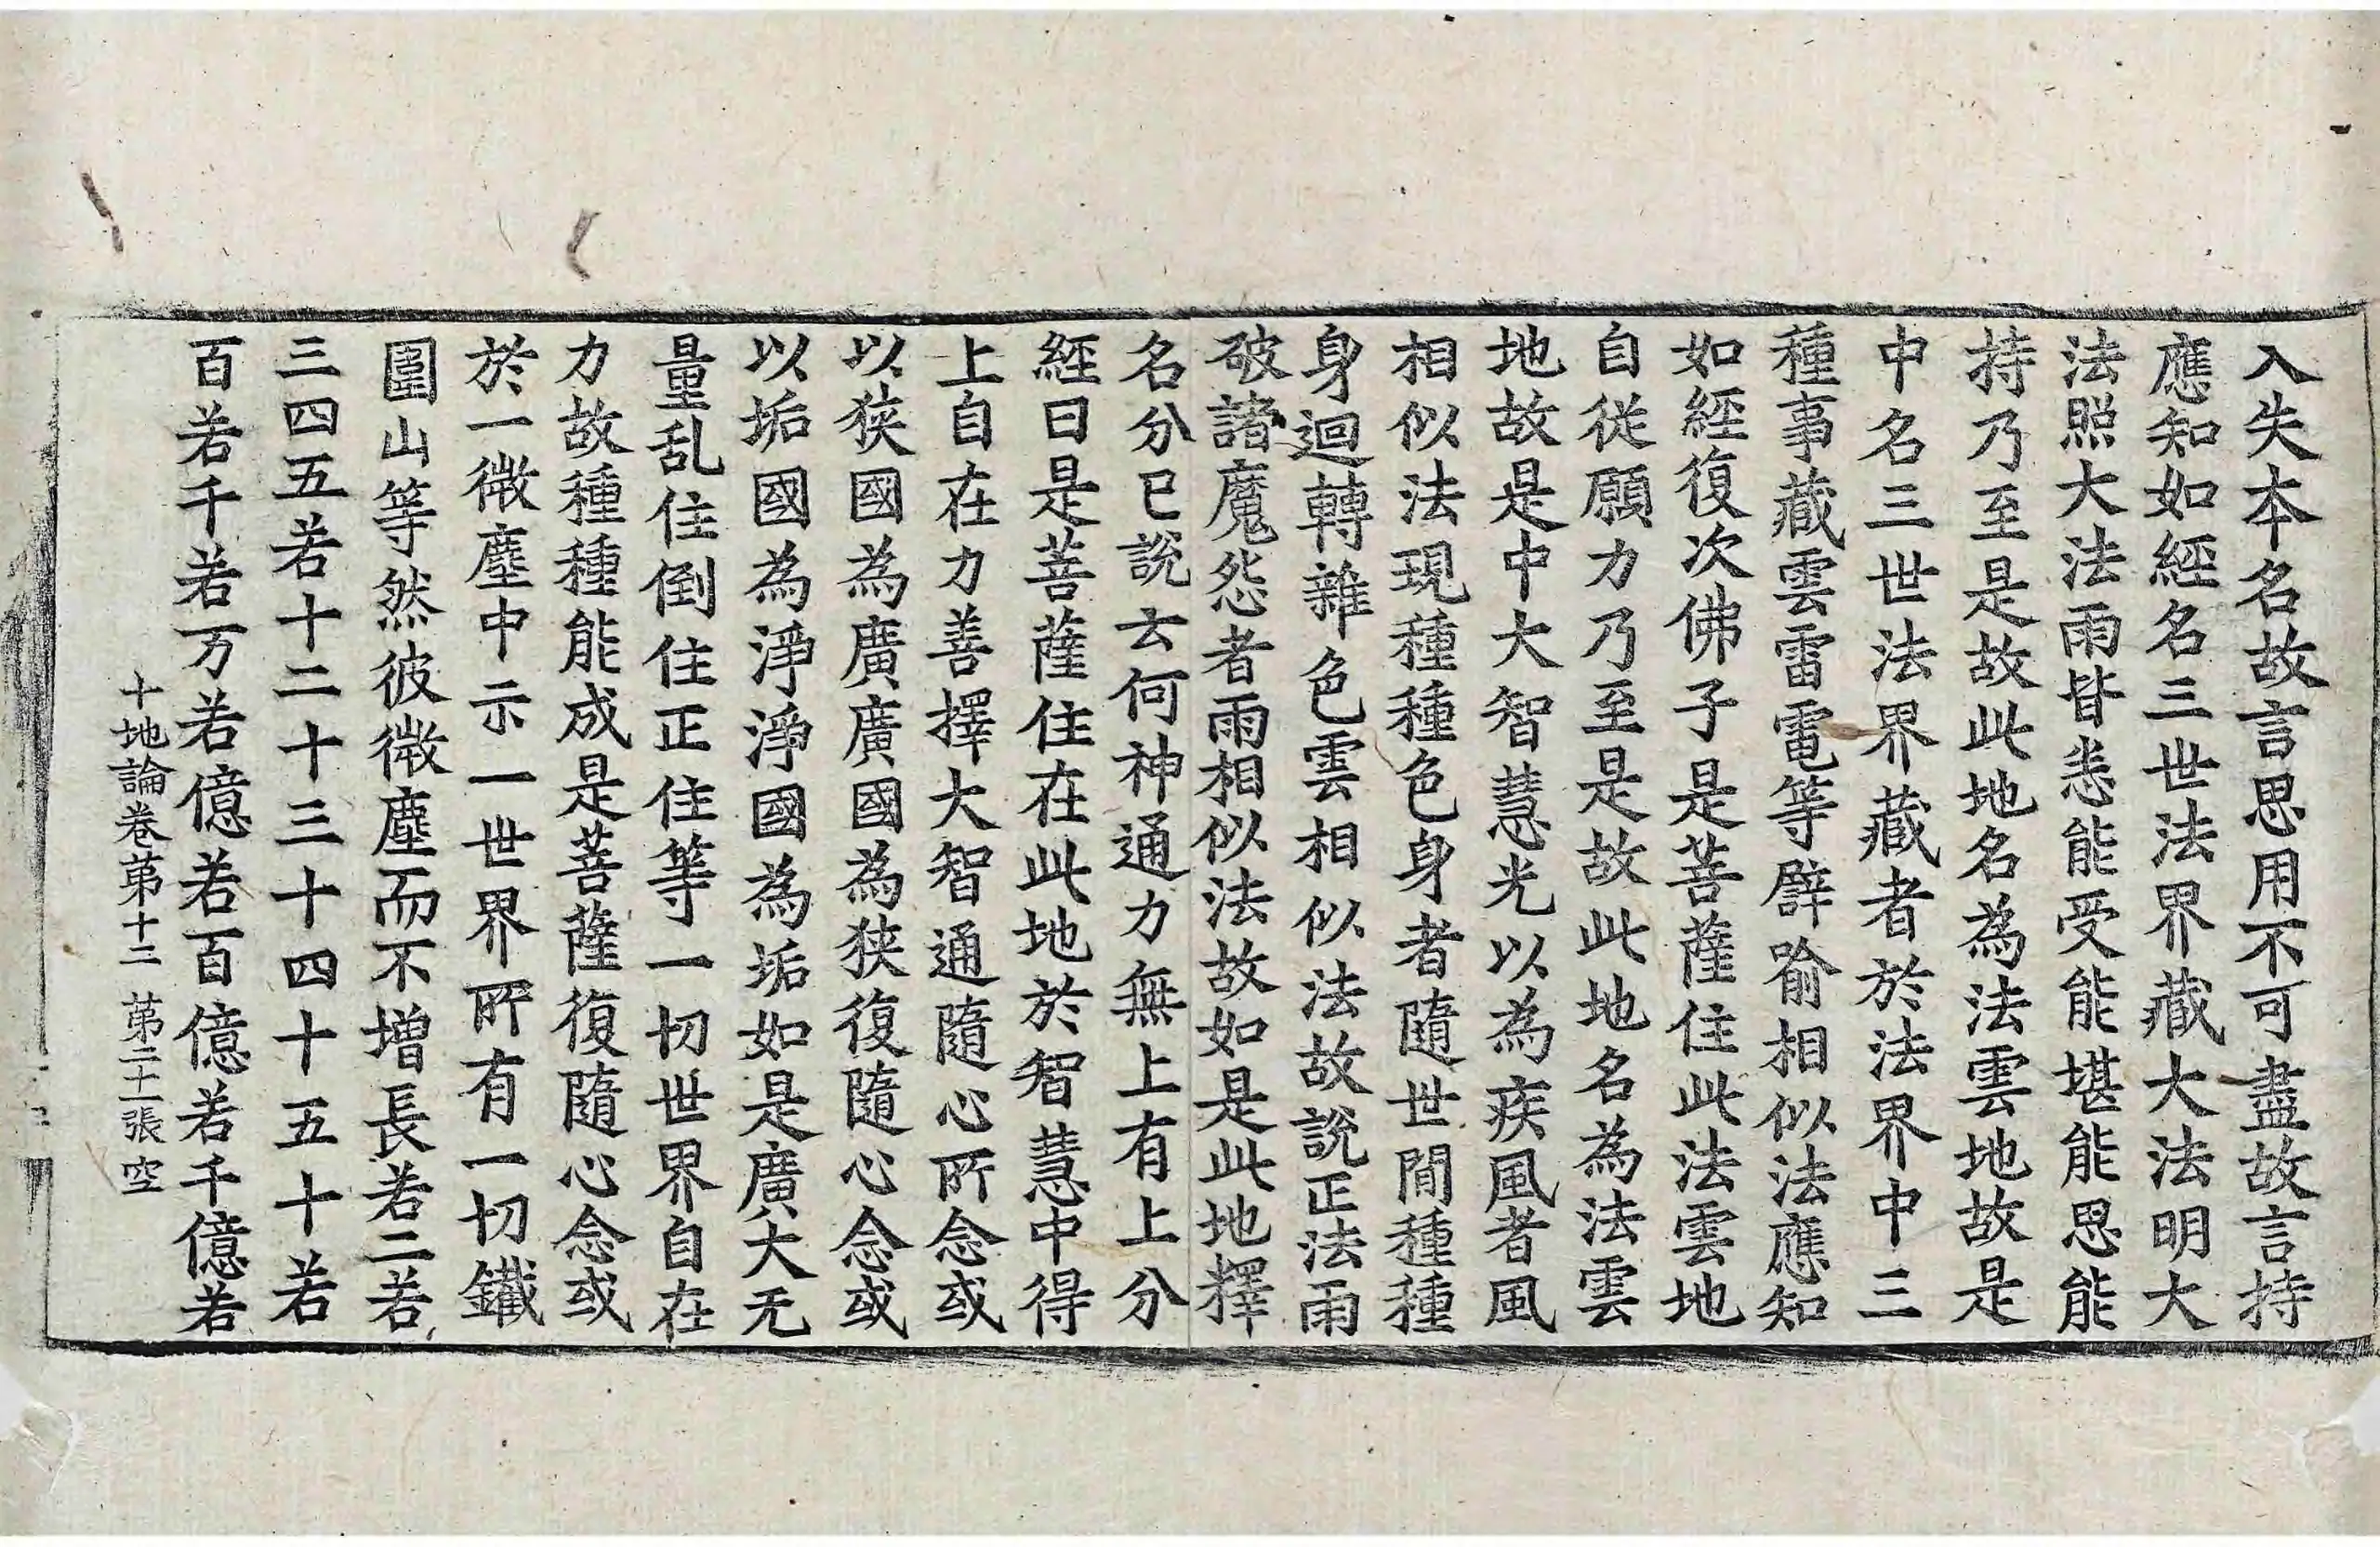 入失本名故言思用不可盡故言持
應知如經名三世法界藏大法明大
法照大法雨皆悉能受能堪能思能
持乃至是故此地名為法雲地故是
中名三世法界藏者於法界中三
種事藏雲雷電等譬喻相似法應知
如經復次佛子是菩薩住此法雲地
自從願力乃至是故此地名為法雲
地故是中大智慧光以為疾風者風
相似法現種種色身者隨世間種種
身迴轉雜色雲相似法故說正法雨
破諸魔怨者雨相似法故如是此地釋
名分已說云何神通力無上有上分
經曰是菩薩住在此地於智慧中得
上自在力善擇大智通隨心所念或
以狹國為廣廣國為狹復隨心念或
以垢國為淨淨國為垢如是廣大无
量乱住倒住正住等一切世界自在
力故種種能成是菩薩復隨心念或
於一微塵中示一世界所有一切鐵
圍山等然彼微塵而不增長若二若
三四五若十二十三十四十五十若
百若千若万若億若百億若千億若
十地論卷第十二 第二十一張 空